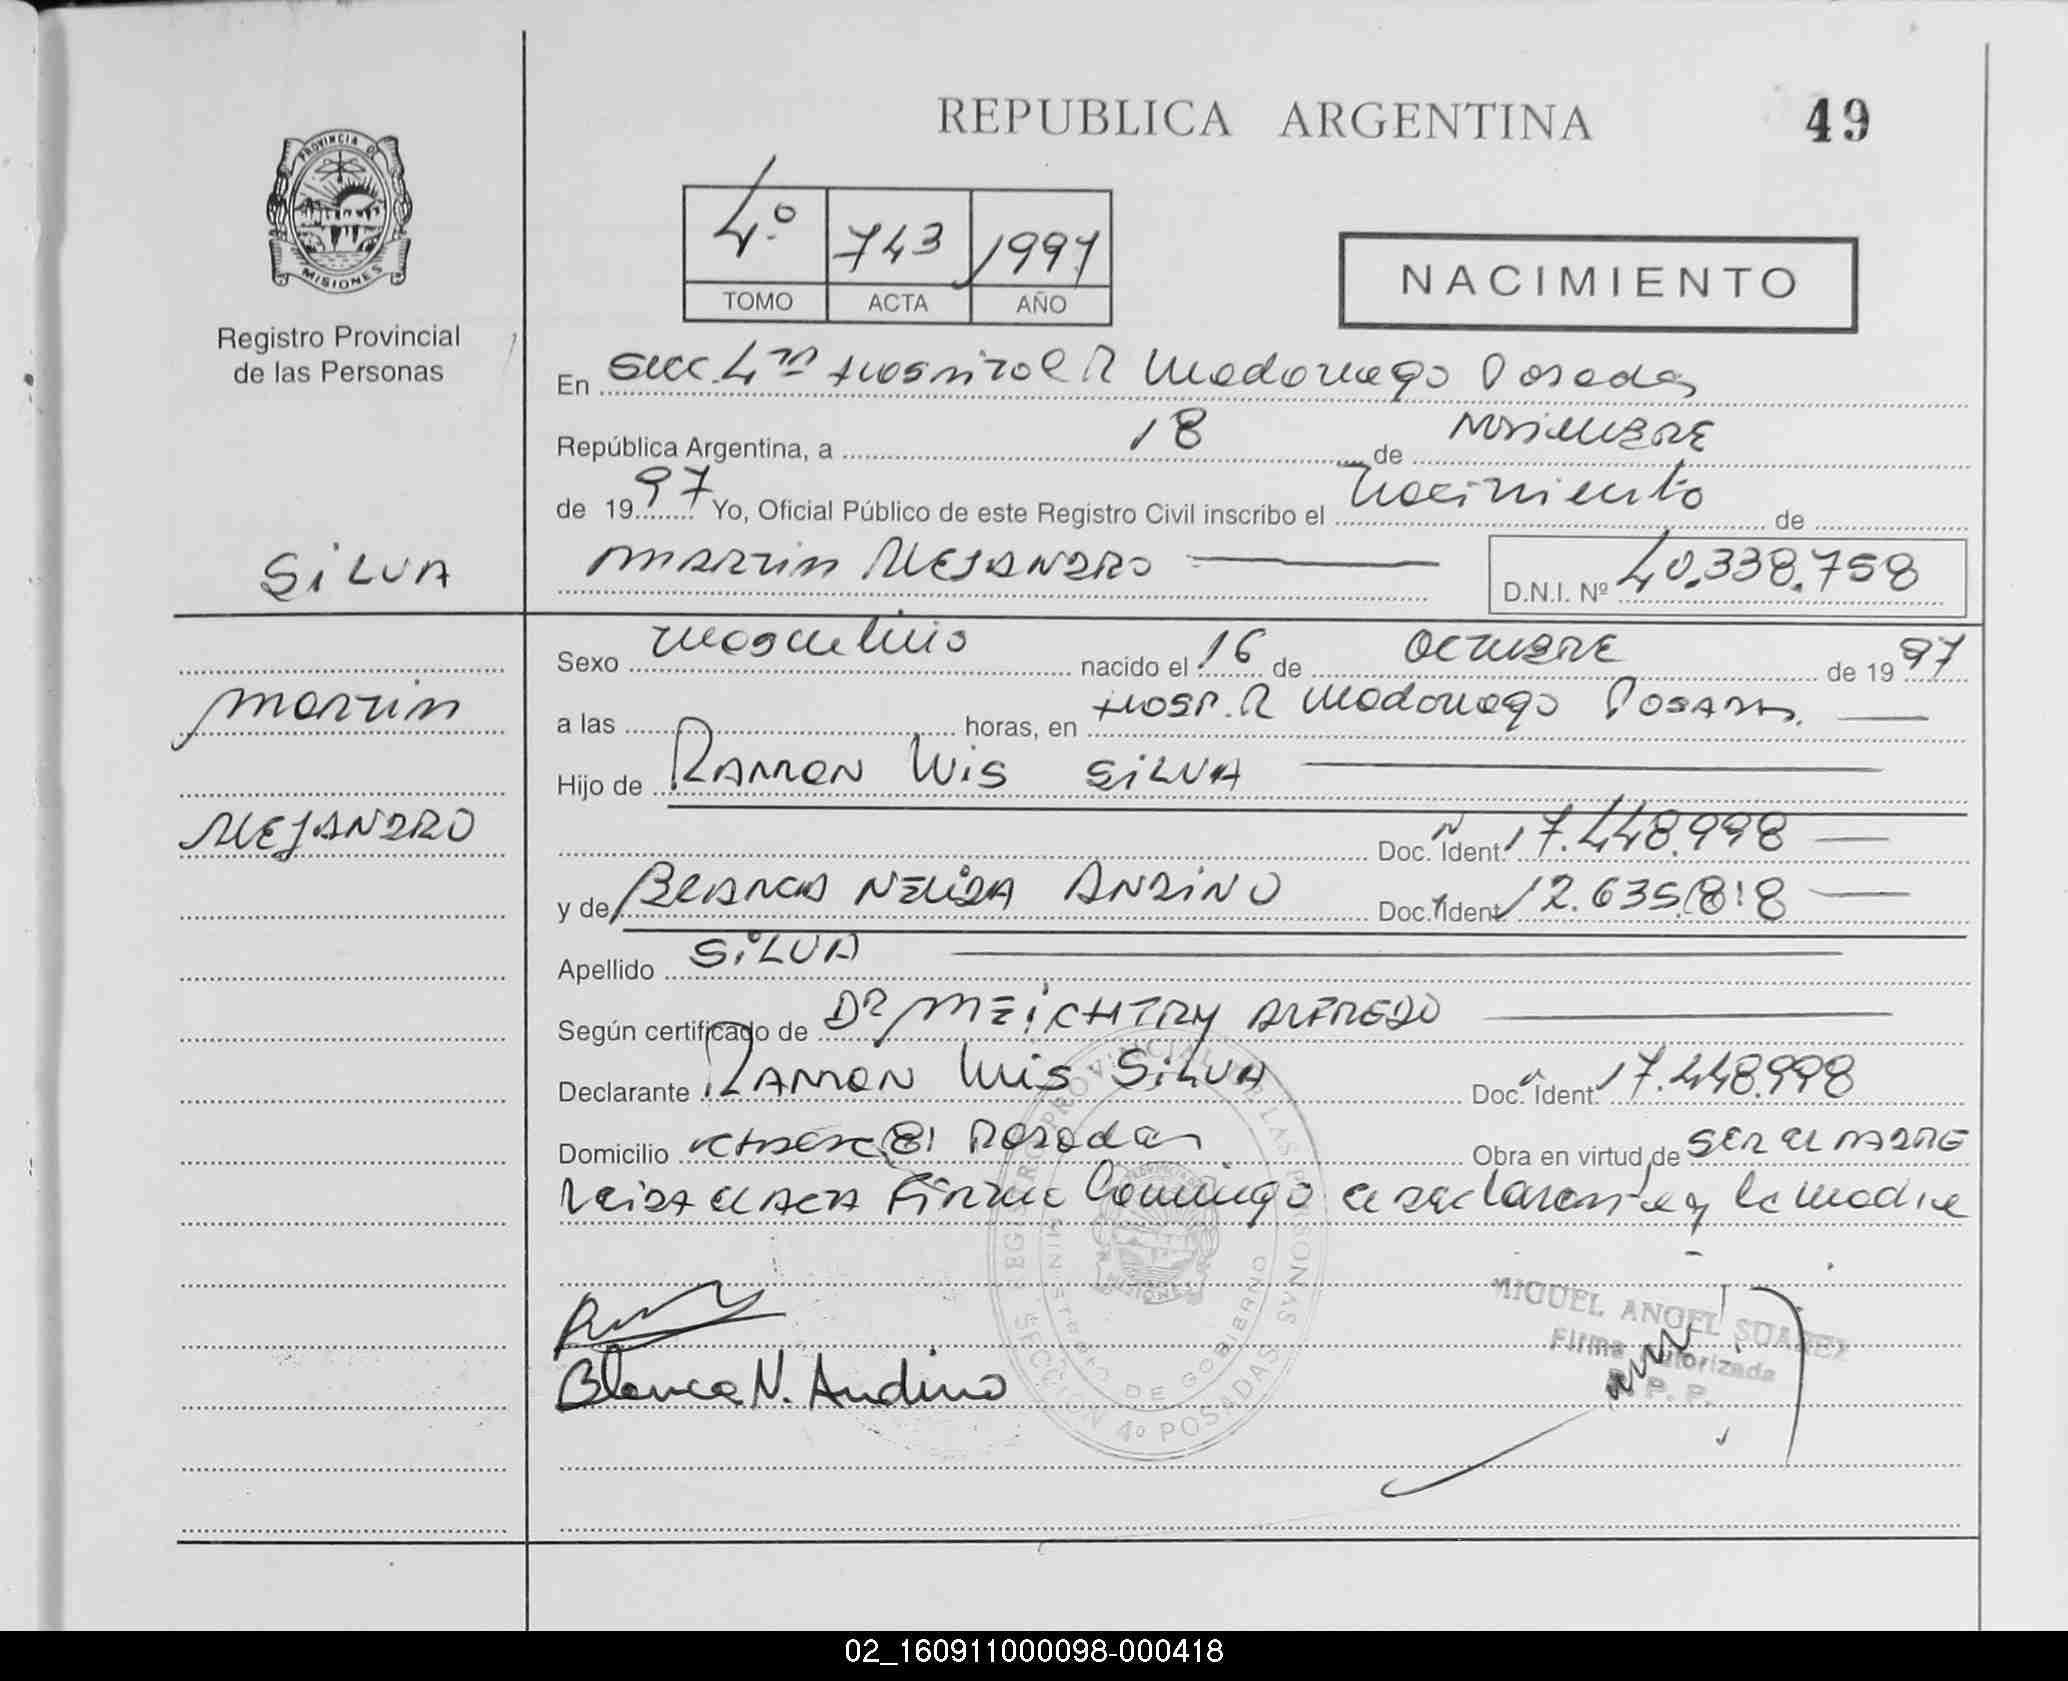 REPUBLICA ARGENTINA
49
PROVINCIA DE
MISIONES
Registro Provincial
de las Personas
4º 743 1997
TOMO ACTA AÑO
NACIMIENTO
En Secc. 4ta Hospital R Madariaga Posadas
República Argentina, a 18 de Noviembre
de 1997 Yo, Oficial Público de este Registro Civil inscribo el Nacimiento de
SILVA
Martin Alejandro D.N.I. Nº 40.338.758
Sexo Masculino nacido el 16 de Octubre de 1997
Martin
a las horas, en Hosp. R Madariaga Posadas.
Hijo de Ramon Luis Silva
Alejandro
Doc. Ident. 17.448.998
y de Blanca Nelida Andino Doc. Ident. 12.635.818
Apellido Silva
Según certificado de Dr Meichtry Alfredo
Declarante Ramon Luis Silva Doc. Ident. 17.448.998
Domicilio 181 Posadas Obra en virtud de ser el padre
Leida el acta firma conmigo el declarante y la madre
REGISTRO PROVINCIAL DE LAS PERSONAS
MINISTERIO DE GOBIERNO
SECCION 4º POSADAS
MIGUEL ANGEL SUAREZ
Firma Autorizada
R. P. P.
Blanca N. Andino
02_160911000098-000418